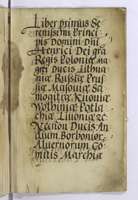 Liber primus Se
renissimi Princi
pis Domini Dni
Henrici Dei gra
Regis Poloniæ ma
gni Ducis Lithua
niæ Russiæ Prus
siæ Masoviæ Sa
mogitiæ Kiioviæ
Wolhiniæ Podla
chiæ Livoniæ ec
Necnon Ducis An
dium Borboniorū
Alvernorum Co
mitis Marchiæ